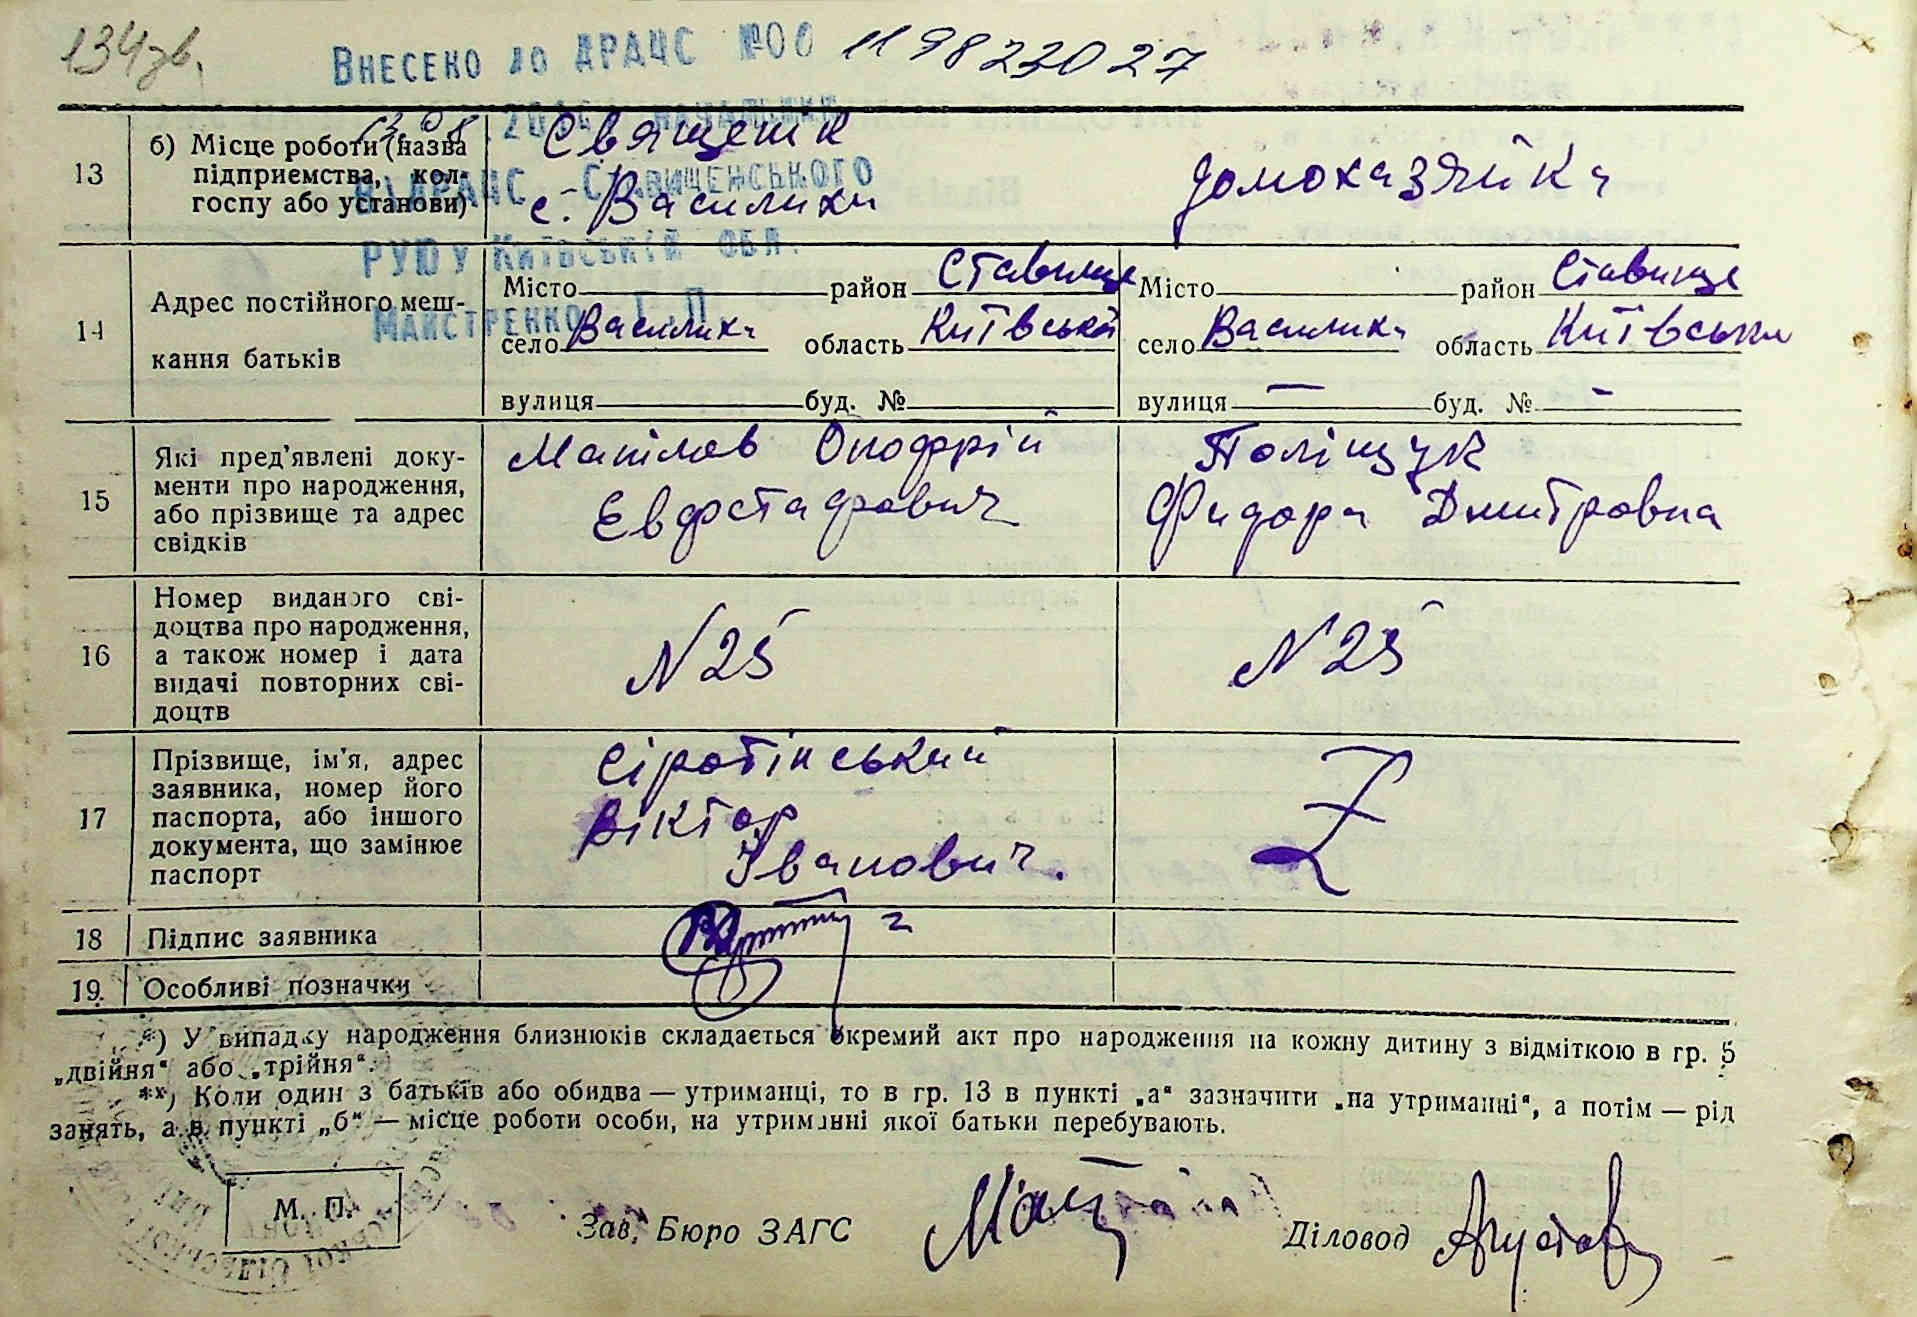 134зв.
Внесено до ДРАЦС №00 1198223027
13
б) Місце роботи (назва підприємства, колгоспу або установи)
Священік
с. Василиха
домохазяйка
ВДРАЦС Ставищенського
РУЮ у Київській обл.
Майстренко Т.П.
14
Адрес постійного мешкання батьків
Місто район Ставище
село Василиха область Київська
вулиця буд. №
Місто район Ставище
село Василиха область Київська
вулиця — буд. № -
15
Які пред'явлені документи про народження, або прізвище та адрес свідків
Онофрій
Евфстафович
Поліщук
Фидора Дмитровна
16
Номер виданого свідоцтва про народження, а також номер і дата видачі повторних свідоцтв
N 25
N 25
17
Прізвище, ім'я, адрес заявника, номер його паспорта, або іншого документа, що замінює паспорт
Сіротінський
Віктор
Іванович.
Z
18
Підпис заявника
19.
Особливі позначки
*) У випадку народження близнюків складається окремий акт про народження на кожну дитину з відміткою в гр. 5
„двійня“ або „трійня“.
**) Коли один з батьків або обидва — утриманці, то в гр. 13 в пункті „а“ зазначити „на утриманні“, а потім — рід
занять, а в пункті „б“ — місце роботи особи, на утриманні якої батьки перебувають.
М. П.
Зав. Бюро ЗАГС
Діловод